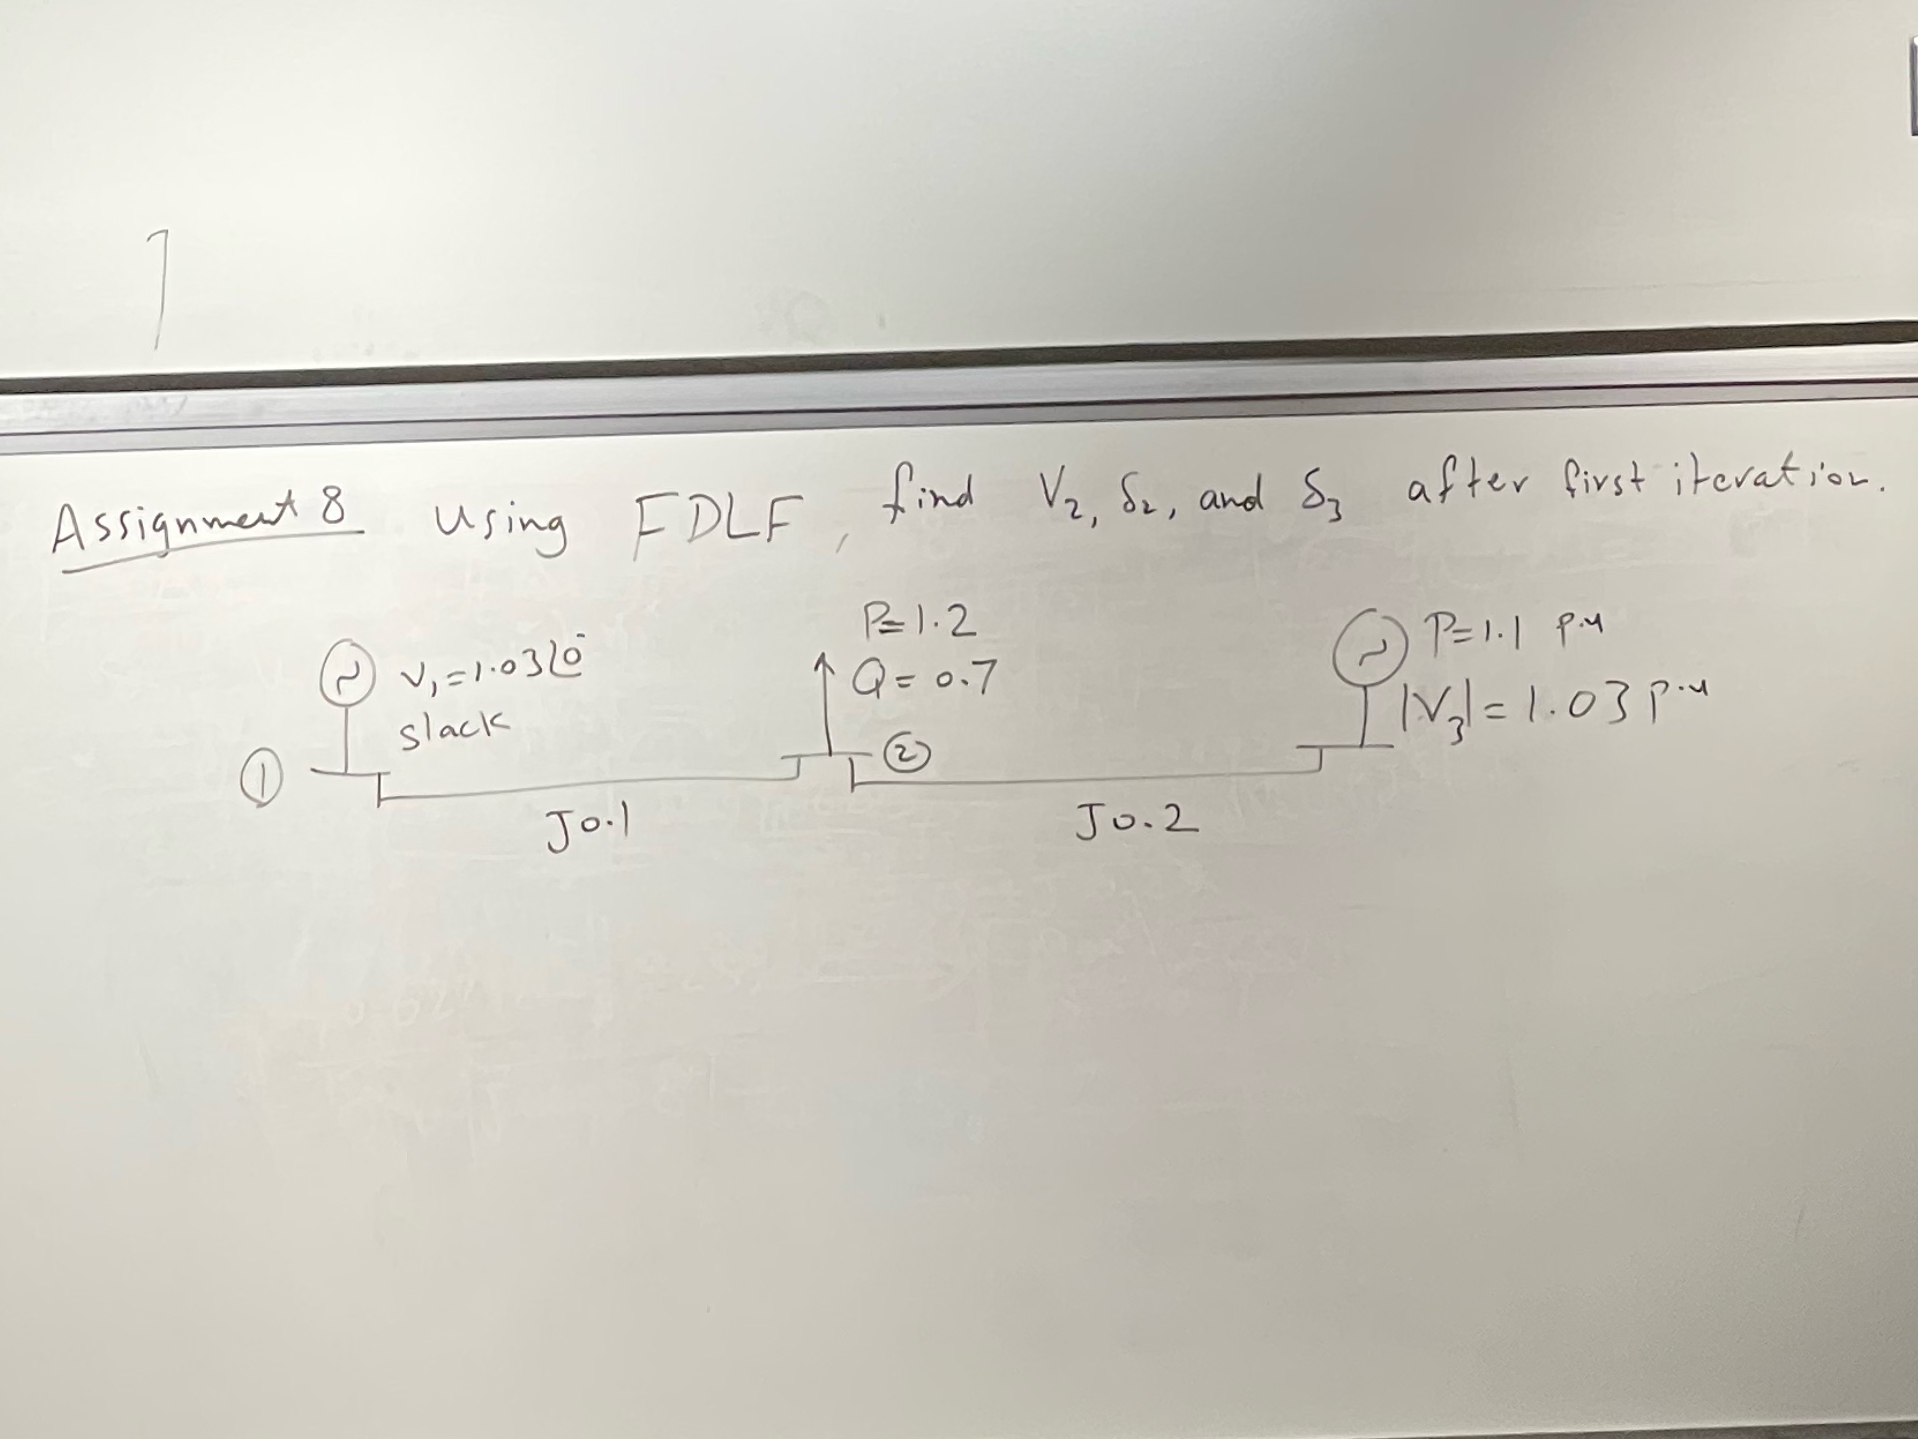 Assignment 8 Using FDLF, find V₂, δ₂, and δ₃ after first iteration.
V₁=1.03∠0°
slack
①
P=1.2
Q=0.7
②
P=1.1 p.u
|V₃|=1.03 p.u
J0.1
J0.2